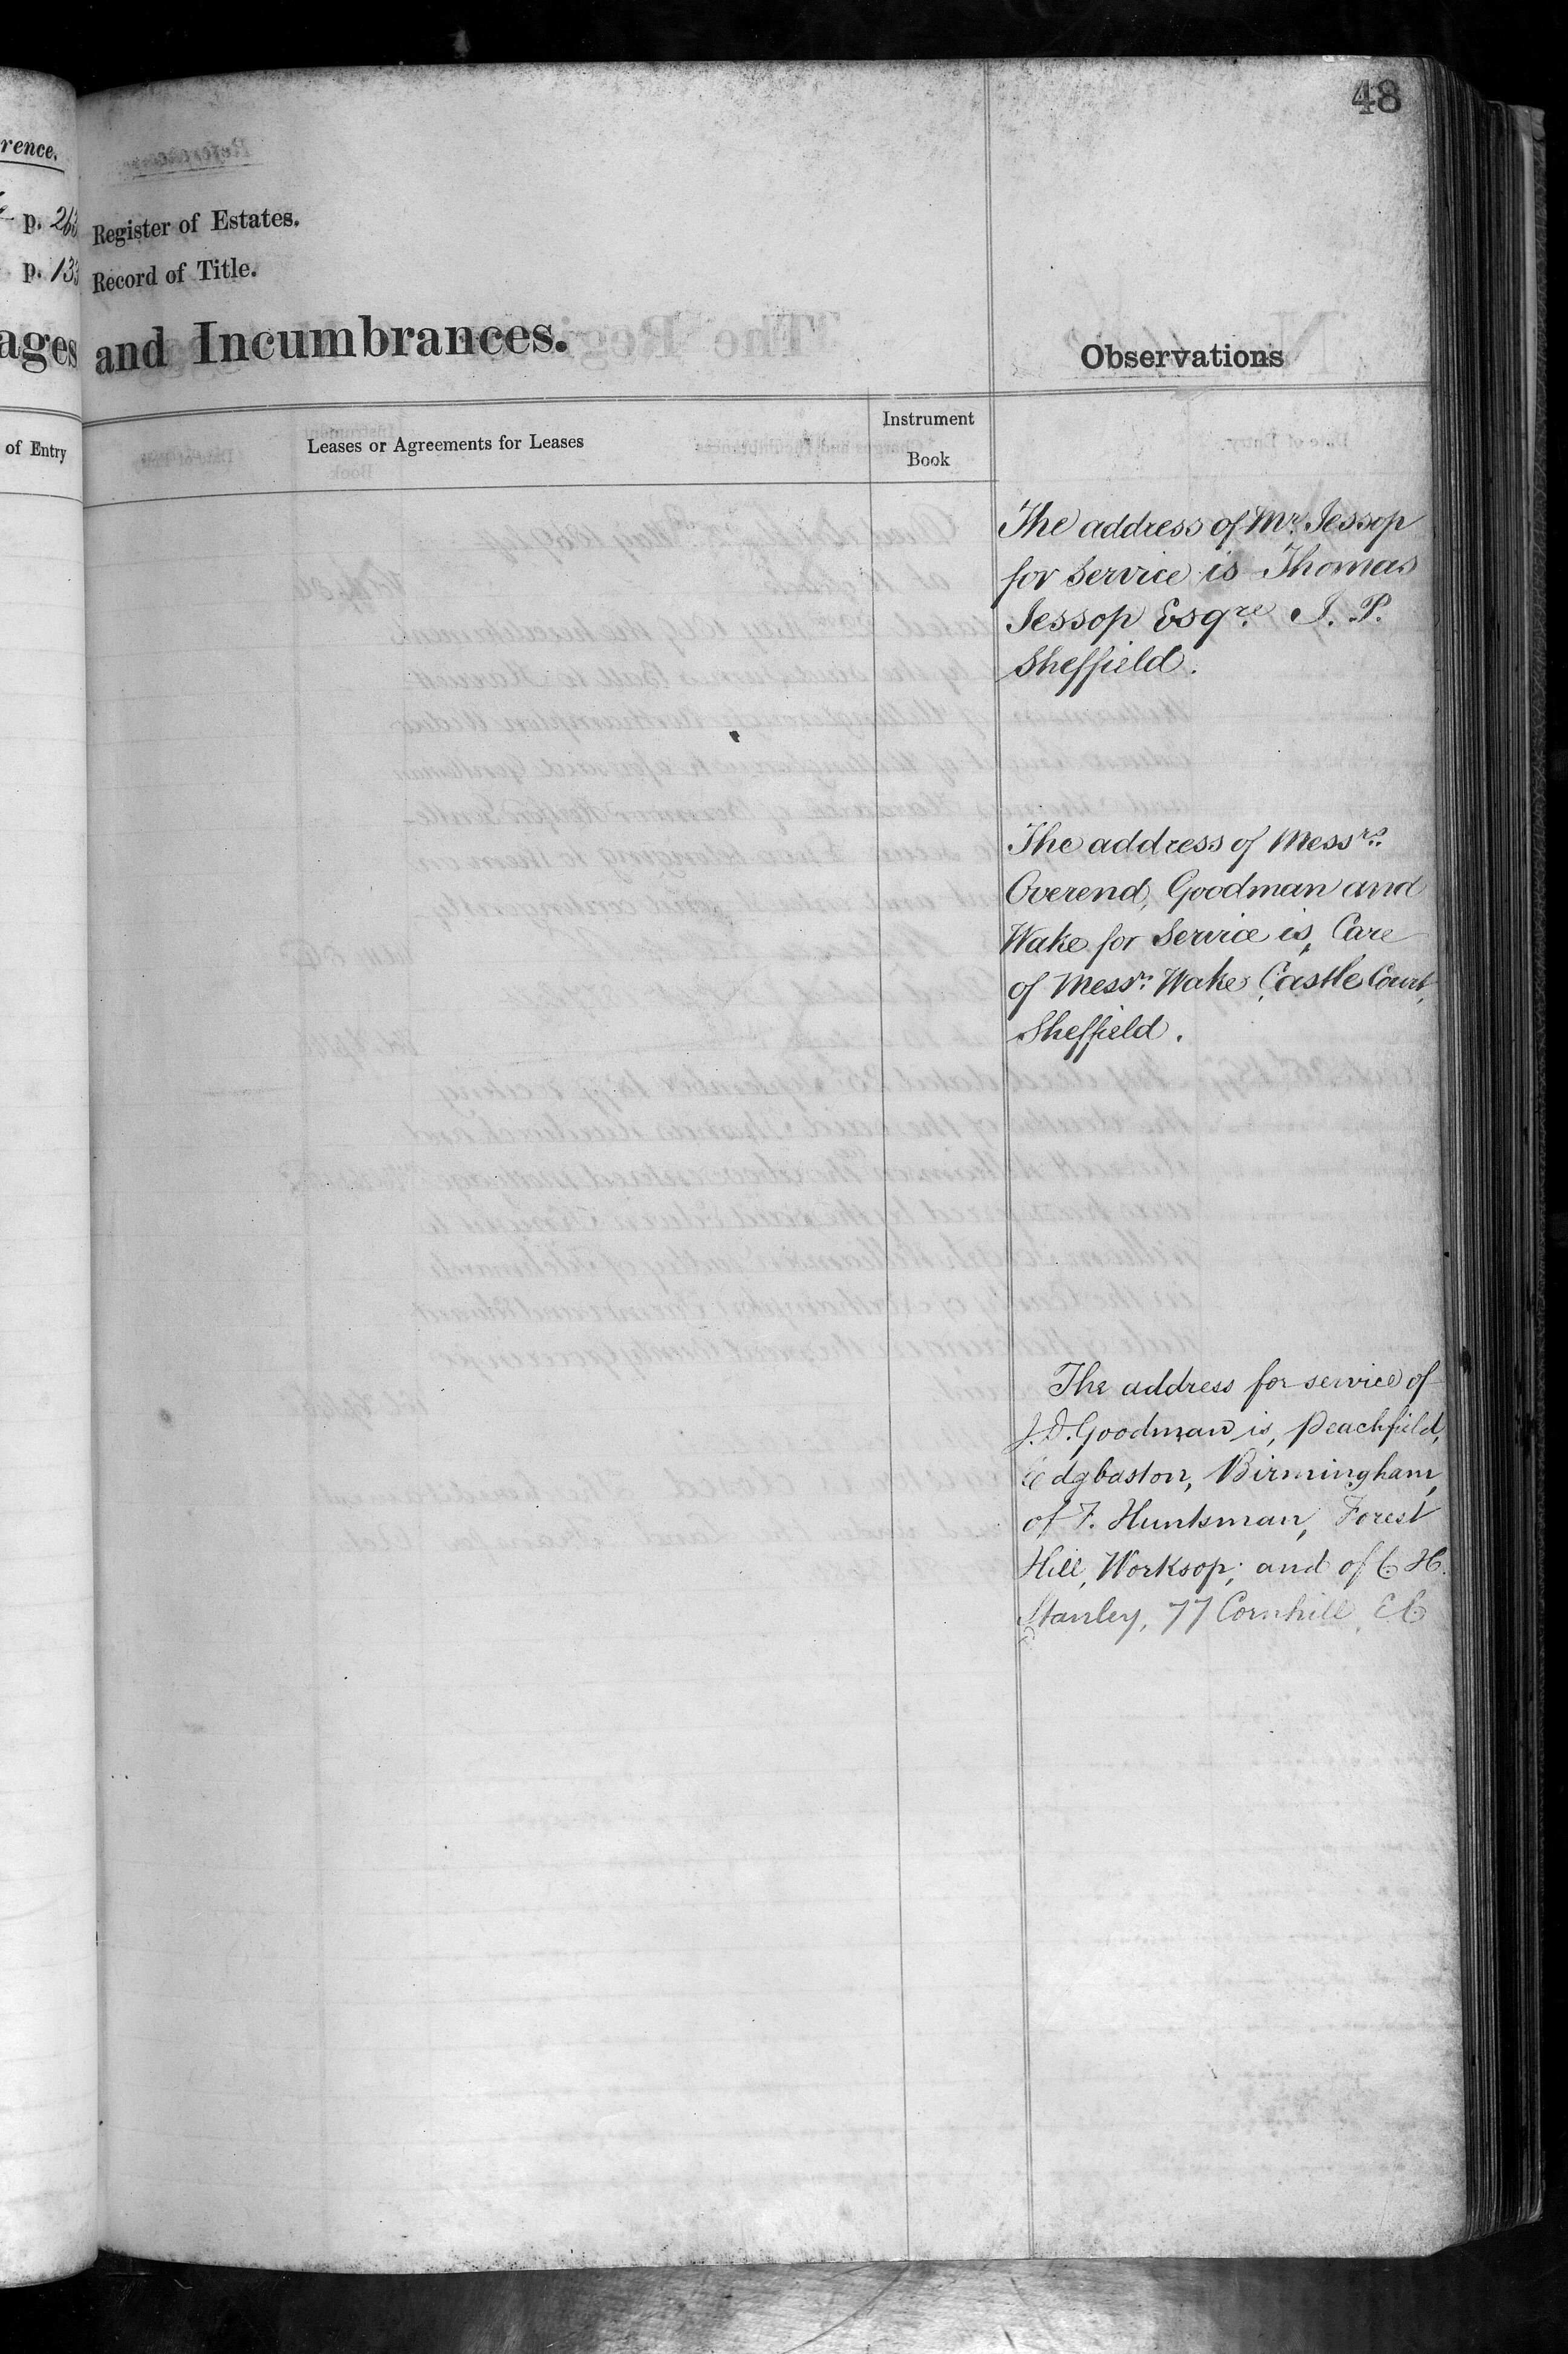 48
rence.
p. 263
p. 133
Register of Estates.
Record of Title.
ages
and Incumbrances.
Observations
of Entry
Leases or Agreements for Leases
Instrument
Book
The address of Mr. Jessop
for Service is Thomas
Jessop Esqre. J. P.
Sheffield.
The address of Messrs.
Overend, Goodman and
Wake for Service is, Care
of Messrs. Wake, Castle Court,
Sheffield.
The address for service of
J. D. Goodman is, Peachfield,
Edgbaston, Birmingham,
of F. Huntsman, Forest
Hill, Worksop; and of C. H.
Stanley, 77 Cornhill, E C